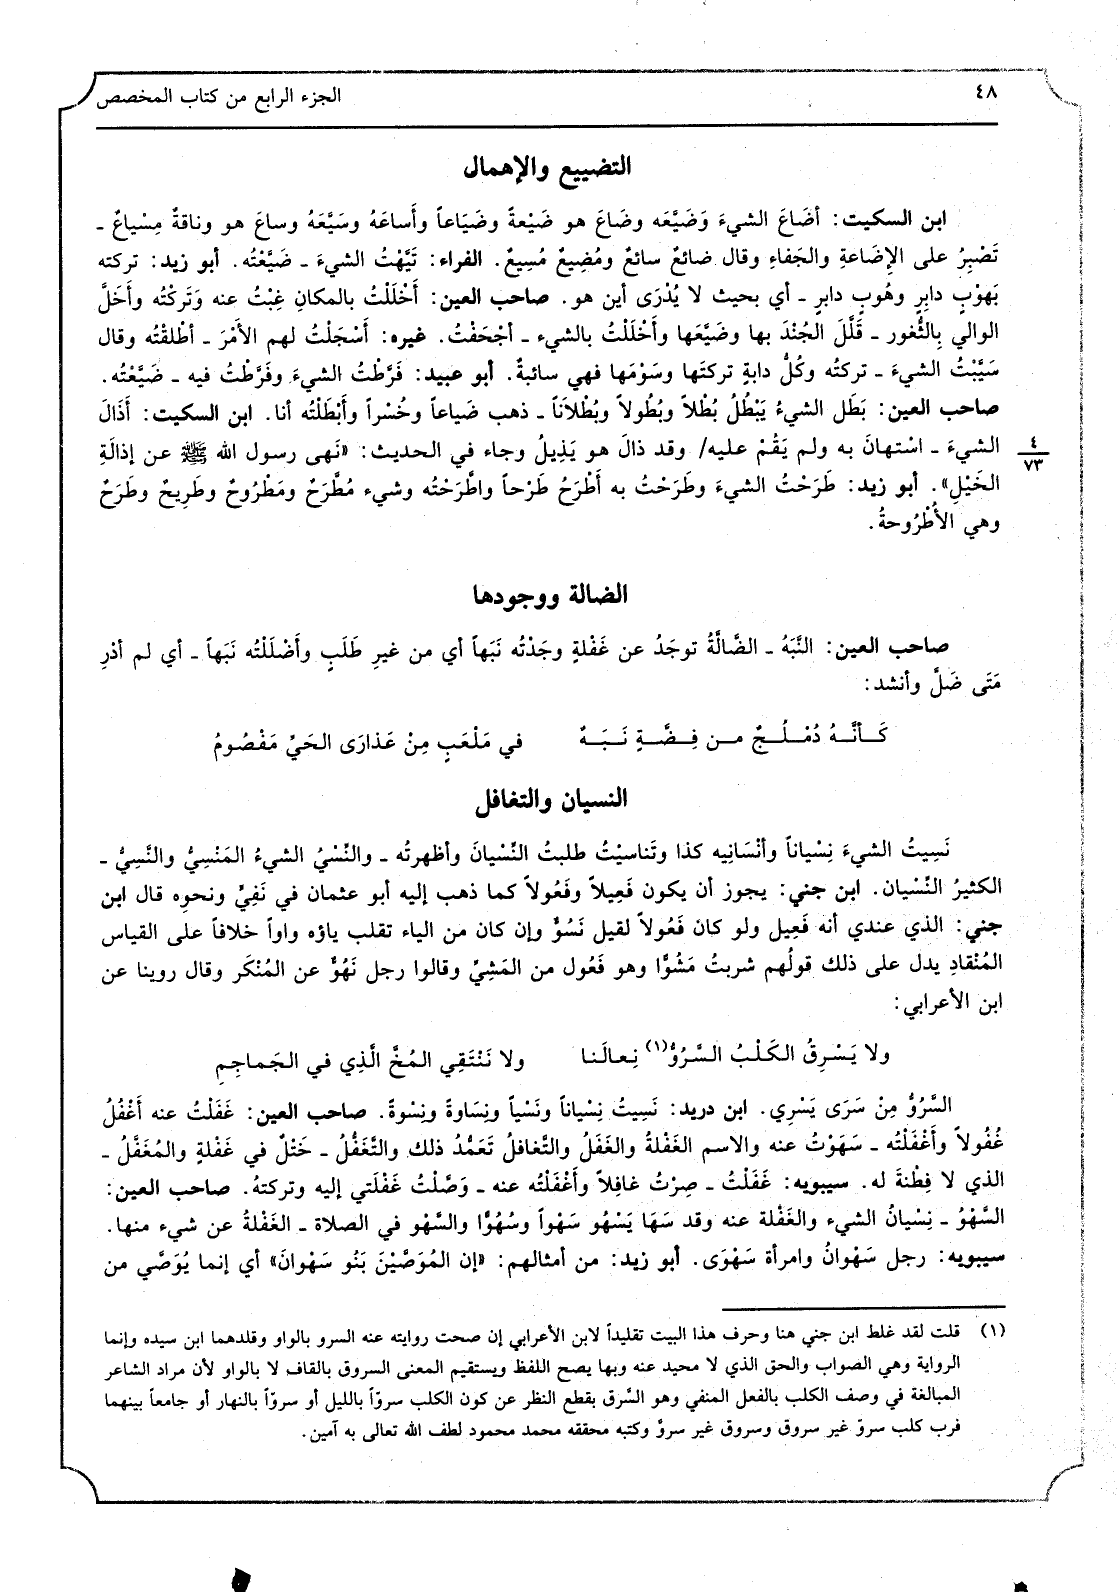 ٤٨
الجزء الرابع من كتاب المخصص
التضييع والإهمال
ابن السكيت: أضَاعَ الشيءَ وَضَيَّعَه وضَاعَ هو ضَيْعةً وضَيَاعاً وأَساعَهُ وسَيَّعَهُ وساعَ هو وناقةٌ مِسْياعٌ ـ
تَصْبِرُ على الإِضَاعةِ والجَفاءِ وقال ضائعٌ سائعٌ ومُضِيعٌ مُسِيعٌ. الفراء: تَيَّهْتُ الشيءَ ـ ضَيَّعْتُه. أبو زيد: تركته
بَهوْبٍ دابِرٍ وهُوبٍ دابرٍ ـ أي بحيث لا يُدْرَى أين هو. صاحب العين: أَخْلَلْتُ بالمكانِ غِبْتُ عنه وَتَركْتُه وأَخَلَّ
الوالي بِالثُّغور ـ قَلَّلَ الجُنْدَ بها وضَيَّعَها وأَخْلَلْتُ بالشيء ـ أجْحَفْتُ. غيره: أَسْجَلْتُ لهم الأَمْرَ ـ أطْلقْتُه وقال
سَيَّبْتُ الشيءَ ـ تركتُه وكُلُّ دابةٍ تركتَها وسَوْمَها فهي سائبةٌ. أبو عبيد: فَرَّطْتُ الشيءَ وفَرَّطْتُ فيه ـ ضَيَّعْتُه.
صاحب العين: بَطَل الشيءُ يَبْطُلُ بُطْلاً وبُطُولاً وبُطْلاَناً ـ ذهب ضَياعاً وخُسْراً وأَبْطَلْتُه أنا. ابن السكيت: أَذَالَ
الشيءَ ـ اسْتهانَ به ولم يَقُمْ عليه/ وقد ذالَ هو يَذِيلُ وجاء في الحديث: «نَهى رسول الله ﷺ عن إذالَةِ
٤
٧٣
الخَيْلِ». أبو زيد: طَرَحْتُ الشيءَ وطَرَحْتُ به أَطْرَحُ طَرْحاً واطَّرَحْتُه وشيء مُطَّرَحٌ ومَطْرُوحٌ وطَرِيحٌ وطَرَحٌ
وهي الأُطْرُوحةُ.
الضالة ووجودها
صاحب العين: النَّبَهُ ـ الضَّالَّةُ توجَدُ عن غَفْلةٍ وجَدْتُه نَبَهاً أي من غيرِ طَلَبٍ وأَضْلَلْتُه نَبَهاً ـ أي لم أدْرِ
مَتَى ضَلَّ وأنشد:
كَـأنَّـهُ دُمْـلُـجٌ مـن فِـضَّـةٍ نَـبَـهٌ في مَلْعَبٍ مِنْ عَذارَى الحَيِّ مَفْصُومُ
النسيان والتغافل
نَسِيتُ الشيءَ نِسْياناً وأنْسَانِيه كذا وتَناسيْتُ طلبتُ النِّسْيانَ وأظهرتُه ـ والنِّسْيُ الشيءُ المَنْسِيُّ والنَّسِيُّ ـ
الكثيرُ النِّسْيان. ابن جني: يجوز أن يكون فَعِيلاً وفَعُولاً كما ذهب إليه أبو عثمان في نَفِيٍّ ونحوِه قال ابن
جني: الذي عندي أنه فَعِيل ولو كان فَعُولاً لقيل نَسُوٌّ وإن كان من الياء تقلب ياؤه واواً خلافاً على القياس
المُنْقادِ يدل على ذلك قولُهم شربتُ مَشُوًّا وهو فَعُول من المَشِيِّ وقالوا رجل نَهُوٌّ عن المُنْكَر وقال روينا عن
ابن الأعرابي:
ولا يَسْرِقُ الكَلْبُ السَّرُوُّ(١) نِعالَنا ولا نَنْتَقِي المُخَّ الَّذِي في الجَماجِمِ
السَّرُوُّ مِنْ سَرَى يَسْرِي. ابن دريد: نَسِيتُ نِسْياناً ونَسْياً ونِسَاوةً ونِسْوةً. صاحب العين: غَفَلْتُ عنه أَغْفُلُ
غُفُولاً وأَغْفَلْتُه ـ سَهَوْتُ عنه والاسم الغَفْلةُ والغَفَلُ والتَّغافلُ تَعَمُّدُ ذلك والتَّغَفُّلُ ـ خَتْلٌ في غَفْلةٍ والمُغَفَّلُ ـ
الذي لا فِطْنةَ له. سيبويه: غَفَلْتُ ـ صِرْتُ غافِلاً وأَغْفَلْتُه عنه ـ وَصَّلْتُ غَفْلَتي إليه وتركتهُ. صاحب العين:
السَّهْوُ ـ نِسْيانُ الشيء والغَفْلة عنه وقد سَهَا يَسْهُو سَهْواً وسُهُوًّا والسَّهْو في الصلاة ـ الغَفْلةُ عن شيء منها.
سيبويه: رجل سَهْوانُ وامرأة سَهْوَى. أبو زيد: من أمثالهم: «إن المُوَصَّيْنَ بَنُو سَهْوانَ» أي إنما يُوَصَّى من
(١) قلت لقد غلط ابن جني هنا وحرف هذا البيت تقليداً لابن الأعرابي إن صحت روايته عنه السرو بالواو وقلدهما ابن سيده وإنما
الرواية وهي الصواب والحق الذي لا محيد عنه وبها يصح اللفظ ويستقيم المعنى السروق بالقاف لا بالواو لأن مراد الشاعر
المبالغة في وصف الكلب بالفعل المنفي وهو السَّرق بقطع النظر عن كون الكلب سروّاً بالليل أو سروّاً بالنهار أو جامعاً بينهما
فرب كلب سروّ غير سروق وسروق غير سروّ وكتبه محققه محمد محمود لطف الله تعالى به آمين.